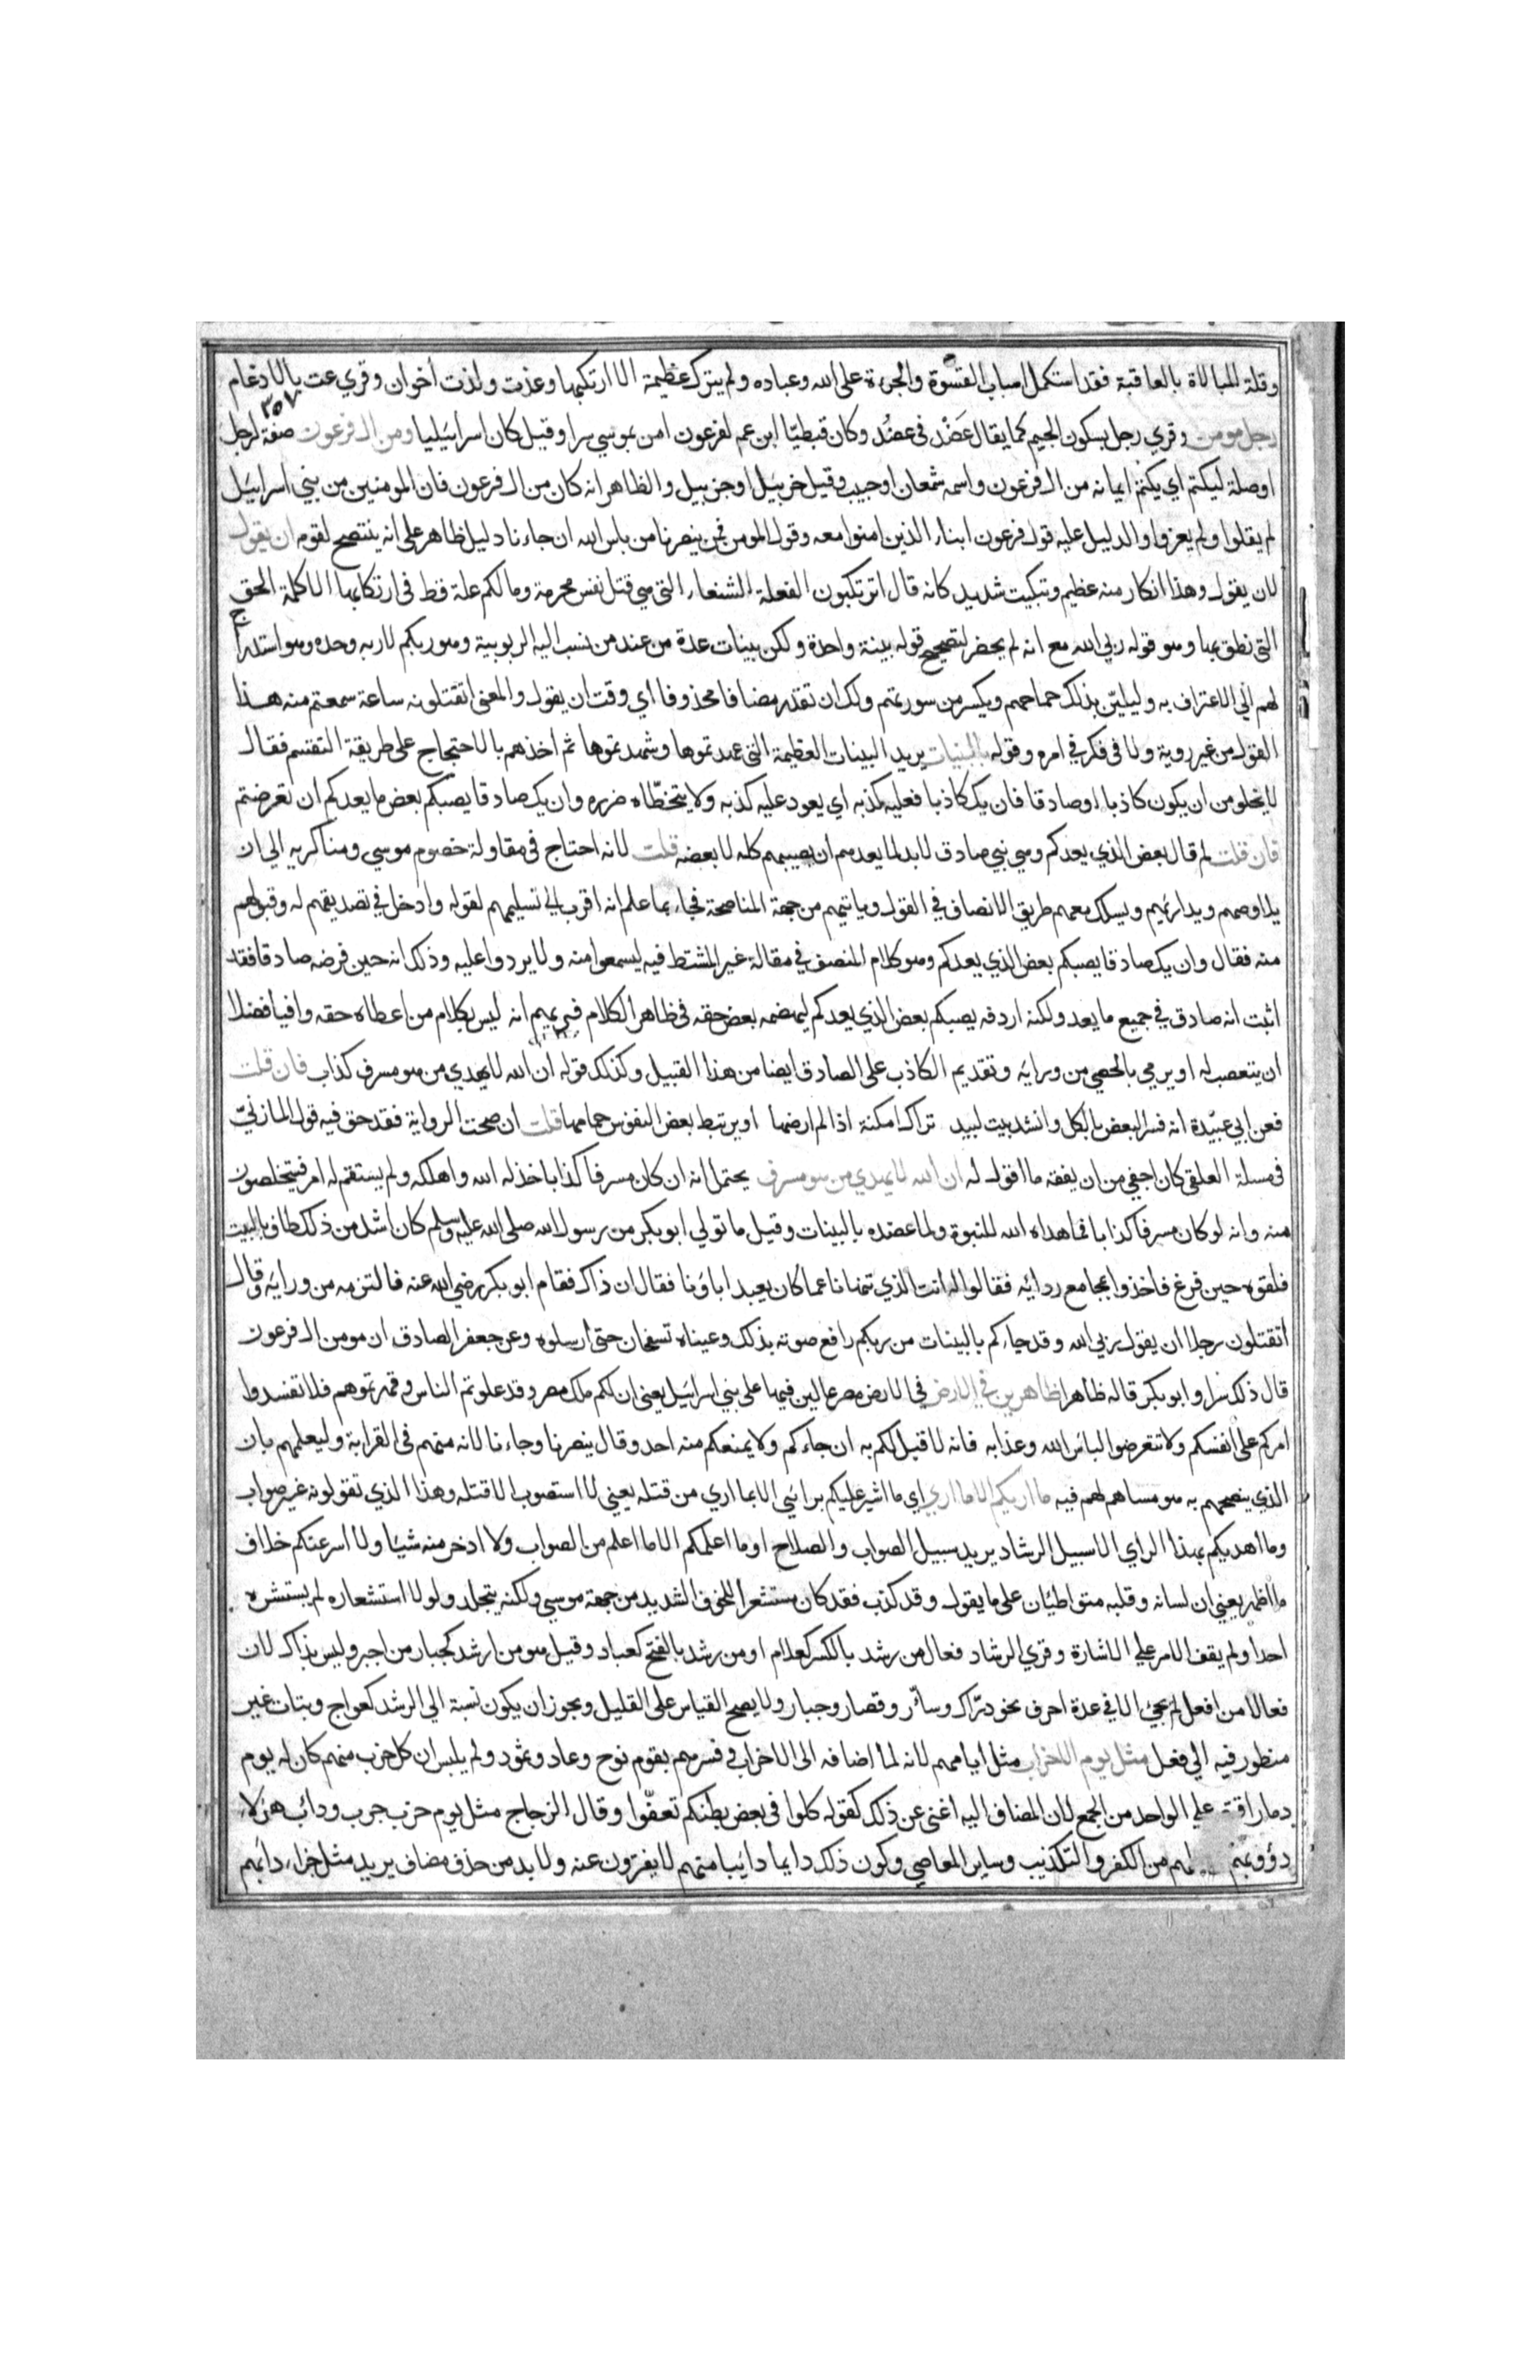 وقلة المبالاة بالعاقبة فقد استكمل اسباب القسوة والجرءة على الله وعباده ولم يترك عظيمة الا ارتكبها وعذت ولذت أخوان وقري عت بالادغام
٣٥٧
رجل مومن وقري رجل بسكون الجيم كما يقال عَضْد في عضُد وكان قبطيّا ابن عم لفرعون امن بموسي سرا وقيل كان اسرائيليا ومن ال فرعون صفة لرجل
اوصلة ليكتم اي يكتم ايمانه من ال فرعون واسمه شمعان اوحبيب وقيل خربيل اوحزبيل والظاهر انه كان من ال فرعون فان المومنين من بني اسرايل
لم يقلوا ولم يعزوا والدليل عليه قول فرعون ابناء الذين امنوا معه وقول المومن فمن ينصرنا من باس الله ان جاءنا دليل ظاهر على انه ينتصح لقومه ان يقول
لان يقول وهذا انكار منه عظيم وتبكيت شديد كانه قال اترتكبون الفعلة الشنعاء التي هي قتل نفس محرمة ومالكم علة قط في ارتكابها الا كلمة الحق
التي نطق بها وهو قوله ربي الله مع انه لم يحضر لتصحيح قوله بينة واحدة ولكن بينات عدة من عند من نسب اليه الربوبية وهو ربكم لاربه وحده وهو استدراج
لهم الي الاعتراف به وليليّن بذلك جماحهم ويكسر من سورتهم ولك ان تقدر مضافا محذوفا اي وقت ان يقول والمعنى اتقتلونه ساعة سمعتم منه هذا
القول من غير روية ولا فكر في امره وقوله بالبينات يريد البينات العظيمة التي عهدتموها وشهدتموها ثم اخذهم بالاحتجاج على طريقة التقسيم فقال
لايخلو من ان يكون كاذبا اوصادقا فان يك كاذبا فعليه كذبه اي يعود عليه كذبه ولا يتخطّاه ضرره وان يك صادقا يصبكم بعض ما يعدكم ان تعرضتم
فان قلت لم قال بعض الذي يعدكم وهي نبي صادق لابد لما يعدهم ان يصيبهم كله لا بعضه قلت لانه احتاج في مقاولة خصوم موسي ومناكريه الي ان
يلاوصهم ويداريهم ويسلك معهم طريق الانصاف في القول وياتيهم من جهة المناصحة فجاء بما علم انه اقرب الي تسليمهم لقوله وادخل في تصديقهم له وقبولهم
منه فقال وان يك صادقا يصبكم بعض الذي يعدكم وهو كلام المنصف في مقاله غير المشتط فيه ليسمعوا منه ولا يردوا عليه وذلك انه حين فرضه صادقا فقد
اثبت انه صادق في جميع ما يعد ولكنه اردفه يصبكم بعض الذي يعدكم ليهضمه بعض حقه في ظاهر الكلام فيريهم انه ليس بكلام من اعطاه حقه وافيا فضلا
ان يتعصب له او يرمي بالحصي من ورايه وتقديم الكاذب على الصادق ايضا من هذا القبيل وكذلك قوله ان الله لا يهدي من هو مسرف كذاب فان قلت
فعن ابي عبيّدة انه فسر البعض بالكل وانشد بيت لبيد تراك امكنة اذا لم ارضها او يرتبط بعض النفوس حمامها قلت ان صحت الرواية فقد حق فيه قول المازنيّ
في مسلة العلقى كان اجفي من ان يفقه ما اقول له ان الله لا يهدي من هو مسرف يحتمل انه ان كان مسرفا كذابا خذله الله واهلكه ولم يستقم له امر فيتخلصون
منه وانه لو كان مسرفا كذابا لما هداه الله للنبوة ولما عضده بالبينات وقيل ما تولي ابو بكر من رسول الله صلى الله عليه وسلم كان اشد من ذلك طاف بالبيت
فلقوه حين فرغ فاخذوا بمجامع ردائه فقالوا له انت الذي تنهانا عما كان يعبد اباؤنا فقال ان ذاك فقام ابو بكر رضي الله عنه فالتزمه من ورايه وقال
أتقتلون رجلا ان يقول ربي الله وقد جاءكم بالبينات من ربكم رافع صوته بذلك وعيناه تسفحان حتى ارسلوه وعن جعفر الصادق ان مومن ال فرعون
قال ذلك سرا وابو بكر قاله ظاهرا ظاهرين في الارض في الارض مصر عالين فيها على بني اسرائيل يعني ان لكم ملك مصر وقد علوتم الناس وقهرتموهم فلا تفسدوا
امركم على انفسكم ولا تتعرضوا لباس الله وعذابه فانه لا قبل لكم به ان جاءكم ولا يمنعكم منه احد وقال ينصرنا وجاءنا لانه منهم في القرابة وليعلمهم بان
الذي ينصحهم به هو مساهم لهم فيه ما اريكم الا ما اري اي ما اشير عليكم برائي الا بما اري من قتله يعني لا استصوب الا قتله وهذا الذي تقولونه غير صواب
وما اهديكم بهذا الراي الا سبيل الرشاد يريد سبيل الصواب والصلاح او ما اعلمكم الا ما اعلم من الصواب ولا ادخر منه شيئا ولا أسر عنكم خلاف
ما اظهر يعني ان لسانه وقلبه متواطئان على ما يقول وقد كذب فقد كان مستشعرا للخوف الشديد من جهة موسي ولكنه يتجلد ولولا استشعاره لم يستشره
احدا ولم يقف الامر على الاشارة وقري الرشاد فعال من رشد بالكسر كعلام او من رشد بالفتح كعباد وقيل هو من ارشد كجبار من اجبر وليس بذاك لان
فعالا من افعل لم يجئ الا في عدة احرف نحو درّاك وسأّر وقصار وجبار ولا يصح القياس على القليل ويجوز ان يكون نسبة الي الرشد كعواج وبتات غير
منظور فيه الي فعل مثل يوم الاحزاب مثل ايامهم لانه لما اضافه الى الاحزاب وفسرهم بقوم نوح وعاد وثمود ولم يلبس ان كل حزب منهم كان له يوم
دمار اقتصر على الواحد من الجمع لان المضاف اليه اغنى عن ذلك كقوله كلوا في بعض بطنكم تعفّوا وقال الزجاج مثل يوم حزب حزب ودأب هؤلاء
دؤوبهم لهم من الكفر والتكذيب وساير المعاصي وكون ذلك دايما دايبا منهم لا يفترون عنه ولا بد من حذف مضاف يريد مثل جزاء دائبهم